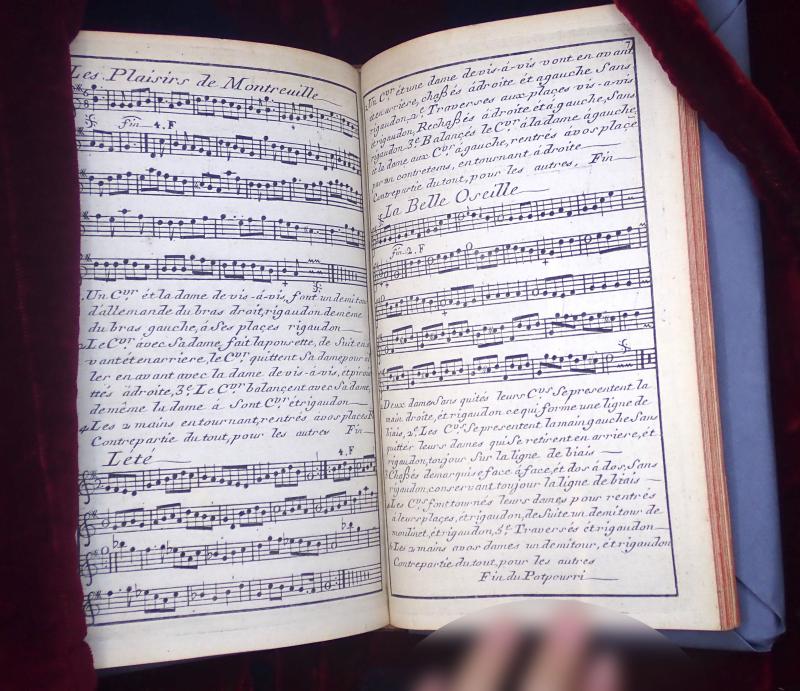 Les Plaisirs de Montreuille
Fin 4.F
1. Un C.vr ét la dame de vis-á-vis, font un demi tour
d'allemande du bras droit, rigaudon de même
du bras gauche, à Ses plaçes rigaudon
2. Le C.vr avec Sa dame, fait la pousette, de Suit en a
vant ét en arriere, le C.vr quittent Sa dame pour al
ler en avant avec la dame de vis-á-vis, ét pirou
ttés á droite, 3.e Le C.vr balançent avec Sa dame,
de même lu dame à Sont C.vr ét rigaudon
4. Les 2 mains en tournant, rentrés ávos plaçes R
Contre partie du tout, pour les autres Fin
L'été
4.F
7
1. Un C.vr ét une dame de vis-á-vis vont en avant
ét en arriere, chaßés á droite ét a gauche, Sans
rigaudon, 2.e Traverses aux plaçes vis-a-vis
ét rigaudon, Rechaßés á droite ét á gauche, Sans
rigaudon 3.e Balançés le C.vr á la dame a gauche,
ét la dame aux C.vr á gauche, rentrés ávos plaçe
par un contretems, en tournant á droite
Contre partie du tout, pour les autres, Fin
La Belle Oseille
Fin 2.F
1. Deux dames Sans quités leurs C.vrs Se present la
main droite, ét rigaudon ce qui forme une ligne de
biais, 2.e Les C.vrs Se present la main gauche Sans
quittér leurs dames qui Se retirent en arriere, ét
rigaudon, toujour Sur la ligne de biais
3. Chaßés de marquise face á face, ét dos á dos, Sans
rigaudon, conservant toujour la ligne de biais
4. Les C.vrs font tournés leurs dames pour rentrés
á leurs plaçes, ét rigaudon, de Suite un demi tour de
moulinet, ét rigaudon, 5.e Traversés ét rigaudon
6. Les 2 mains a vos dames un demi tour, ét rigaudon
Contre partie du tout, pour les autres
Fin du Potpourri